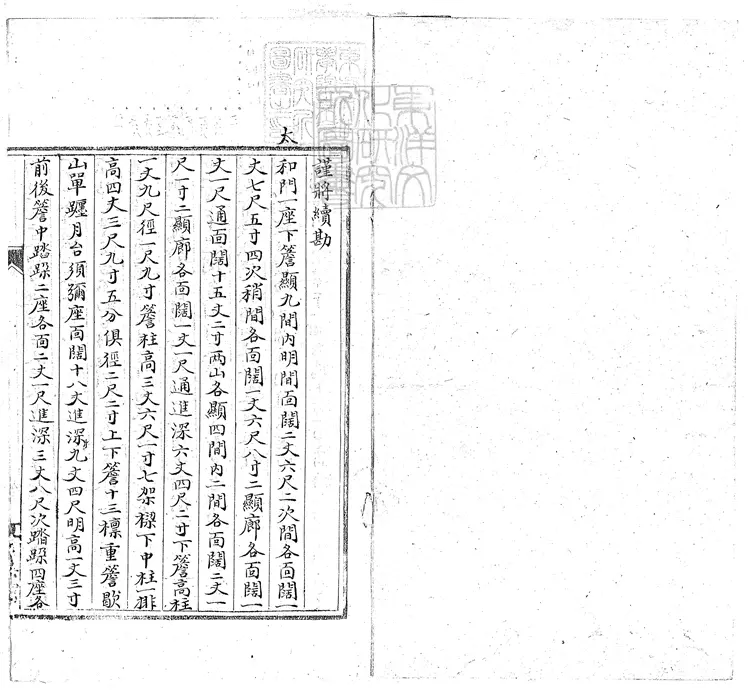 謹將續勘
太
和門一座下簷顯九間内明間面闊二丈六尺二次間各面闊一
丈七尺五寸四次稍間各面闊一丈六尺八寸二顯廊各面闊一
丈一尺通面闊十五丈二寸兩山各顯四間内二間各面闊二丈一
尺一寸二顯廊各面闊一丈一尺通進深六丈四尺二寸下簷高柱
一丈九尺徑一尺九寸簷柱高三丈六尺一寸七架樑下中柱一排
高四丈三尺九寸五分俱徑二尺二寸上下簷十三檩重簷歇
山單䟫月台須彌座面闊十八丈進深九丈四尺明高一丈三寸
前後簷中踏跺二座各面二丈一尺進深三丈八尺次踏跺四座各